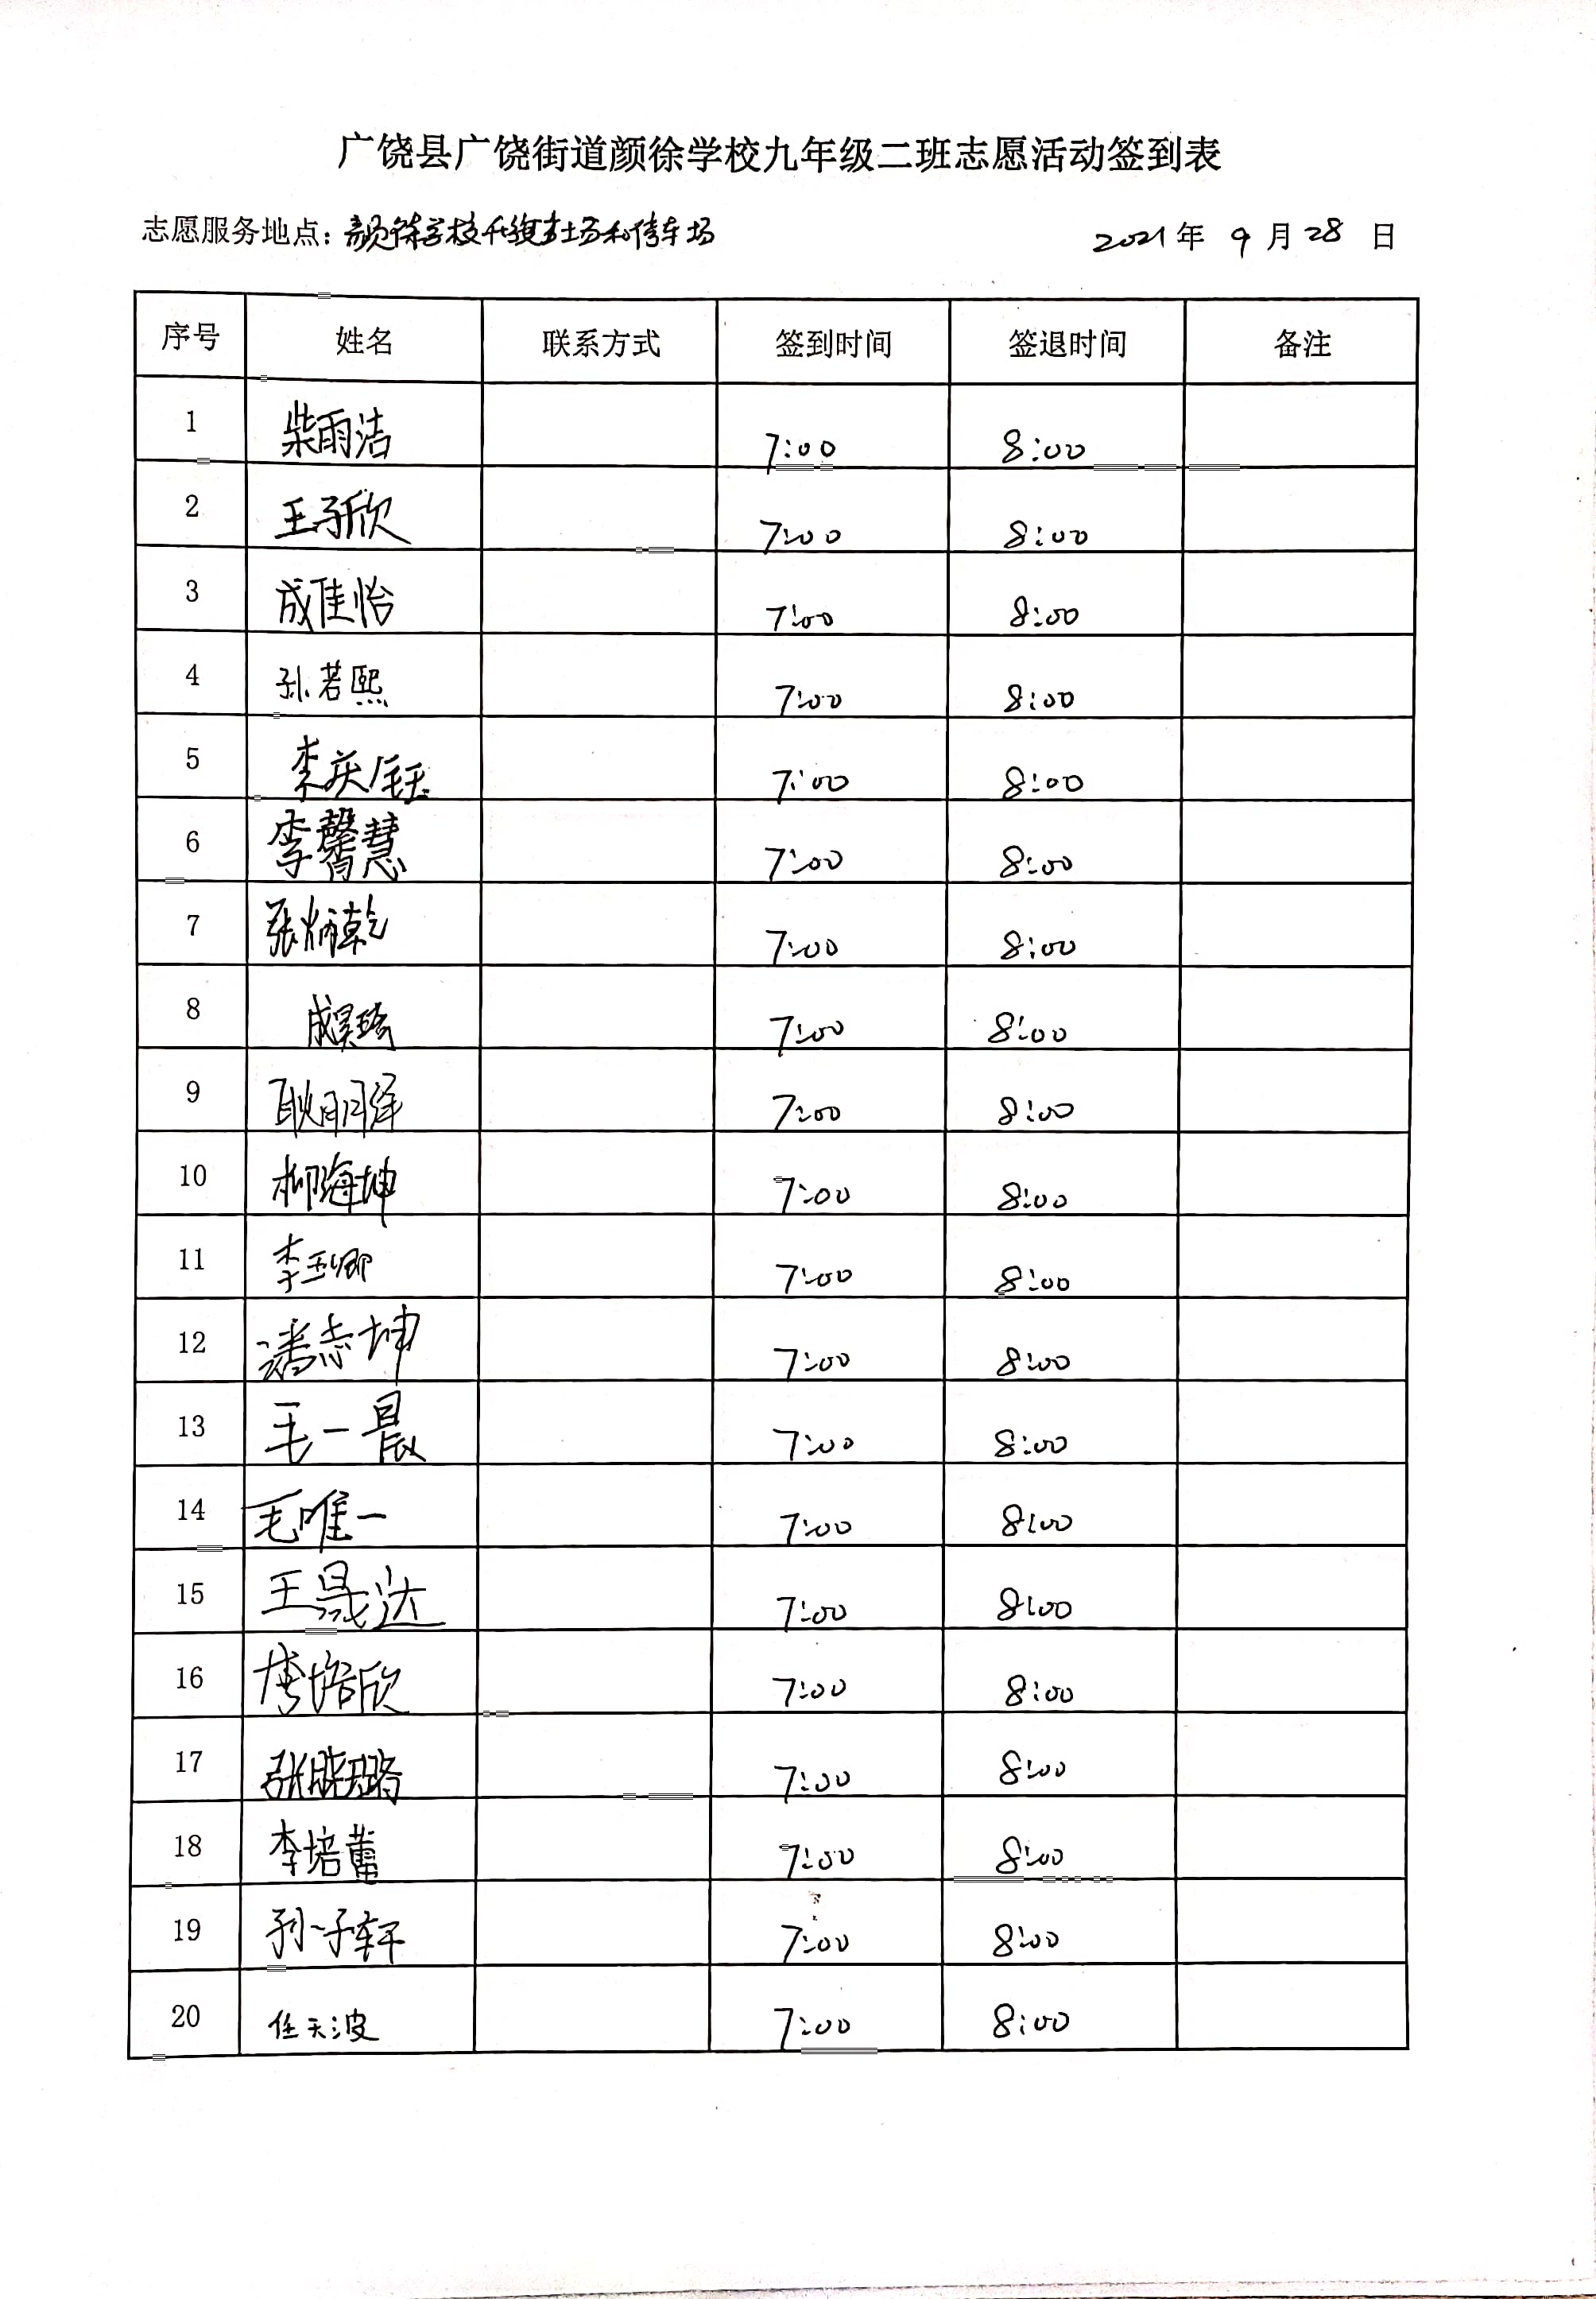 广饶县广饶街道颜徐学校九年级二班志愿活动签到表
志愿服务地点：颜徐学校 和停车场 2021年 9 月 28 日
序号 姓名 联系方式 签到时间 签退时间 备注
1 柴雨洁 7:00 8:00
2 王子欣 7:00 8:00
3 成佳怡 7:00 8:00
4 孙若熙 7:00 8:00
5 李庆钰 7:00 8:00
6 李馨慧 7:00 8:00
7 张炳乾 7:00 8:00
8 成昊琦 7:00 8:00
9 耿明泽 7:00 8:00
10 柳海坤 7:00 8:00
11 李玉卿 7:00 8:00
12 潘志坤 7:00 8:00
13 毛一晨 7:00 8:00
14 毛唯一 7:00 8:00
15 王晟达 7:00 8:00
16 李培欣 7:00 8:00
17 张晓璐 7:00 8:00
18 李培蕾 7:00 8:00
19 孙子轩 7:00 8:00
20 任天波 7:00 8:00